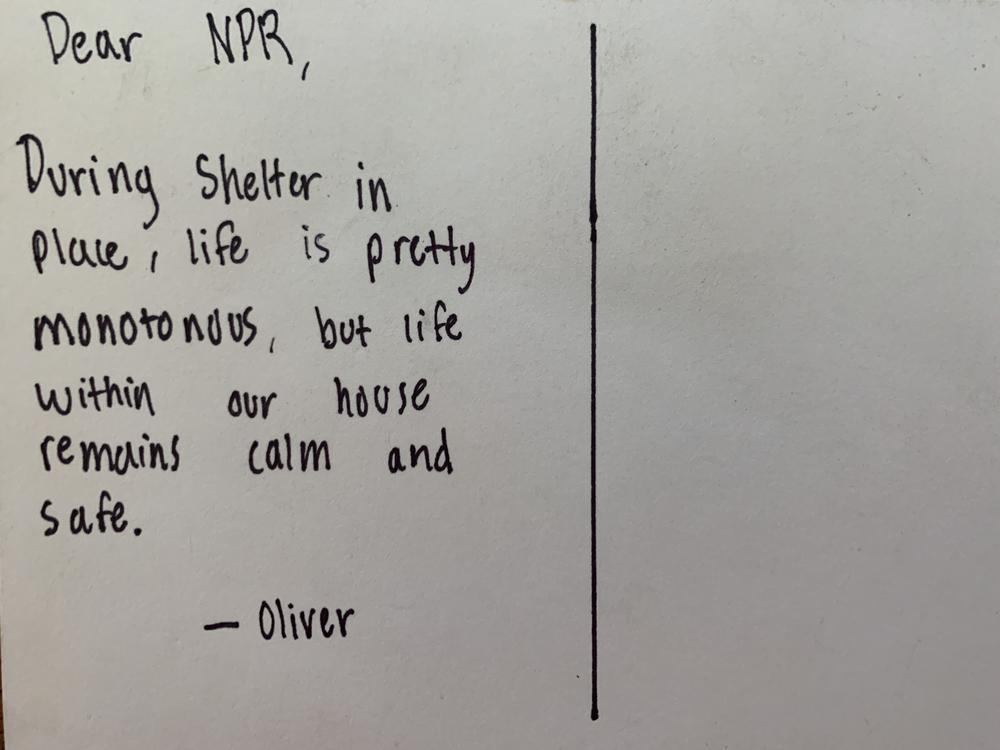 Dear NPR,
During Shelter in
place, life is pretty
monotonous, but life
within our house
remains calm and
safe.
— Oliver